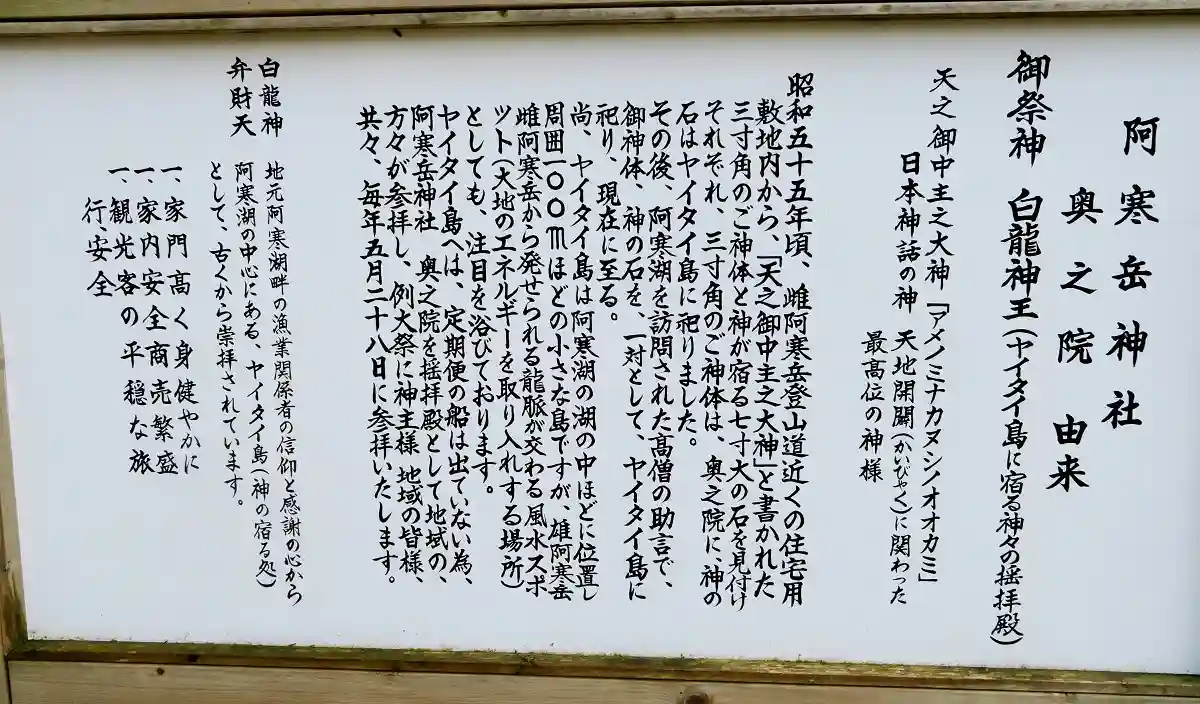 阿寒岳神社
奥之院 由来
御祭神 白龍神王(ヤイタイ島に宿る神々の揺拝殿)
天之御中主之大神「アメノミナカヌシノオオカミ」
日本神話の神 天地開闢(かいびゃく)に関わった
最高位の神様
昭和五十五年頃、雌阿寒岳登山道近くの住宅用
敷地内から、「天之御中主之大神」と書かれた
三寸角のご神体と神が宿る七寸大の石を見付け
それぞれ、三寸角のご神体は、奥之院に、神の
石はヤイタイ島に祀りました。
その後、阿寒湖を訪問された高僧の助言で、
御神体、神の石を、一対として、ヤイタイ島に
祀り、現在に至る。
尚、ヤイタイ島は阿寒湖の湖の中ほどに位置し
周囲一〇〇mほどの小さな島ですが、雄阿寒岳
雌阿寒岳から発せられる龍脈が交わる風水スポ
ット(大地のエネルギーを取り入れする場所)
としても、注目を浴びております。
ヤイタイ島へは、定期便の船は出ていない為、
阿寒岳神社 奥之院を揺拝殿として地域の、
方々が参拝し、例大祭に神主様 地域の皆様、
共々、毎年五月二十八日に参拝いたします。
白龍神 地元阿寒湖畔の漁業関係者の信仰と感謝の心から
弁財天 阿寒湖の中心にある、ヤイタイ島(神の宿る処)
として、古くから崇拝されています。
一、家門高く身健やかに
一、家内安全商売繁盛
一、観光客の平穏な旅
行、安全